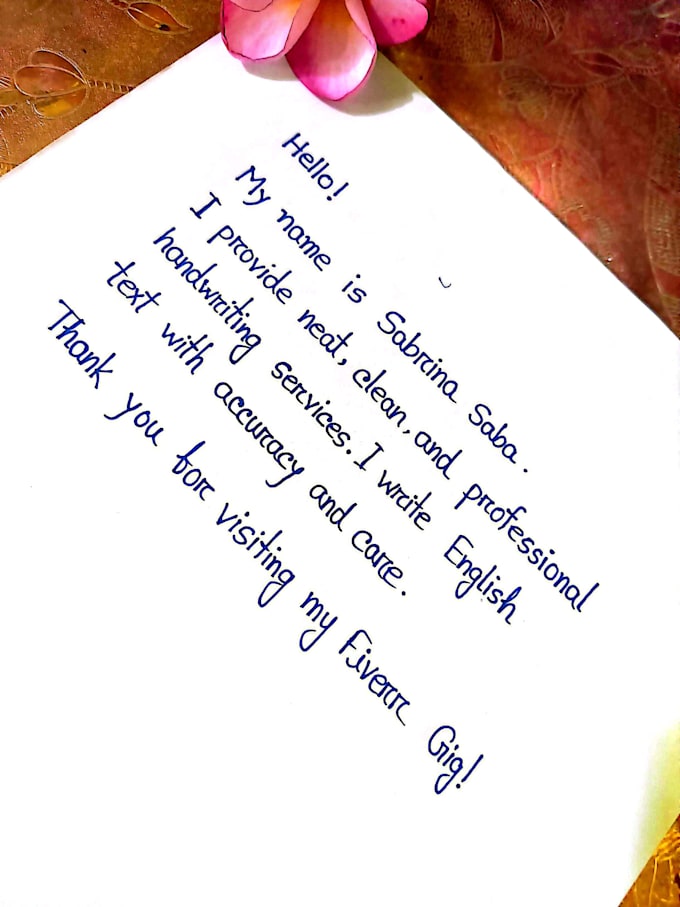 Hello!
My name is Sabrina Saba.
I provide neat, clean, and professional
handwriting services. I write English
text with accuracy and care.
Thank you for visiting my Fiverr Gig!